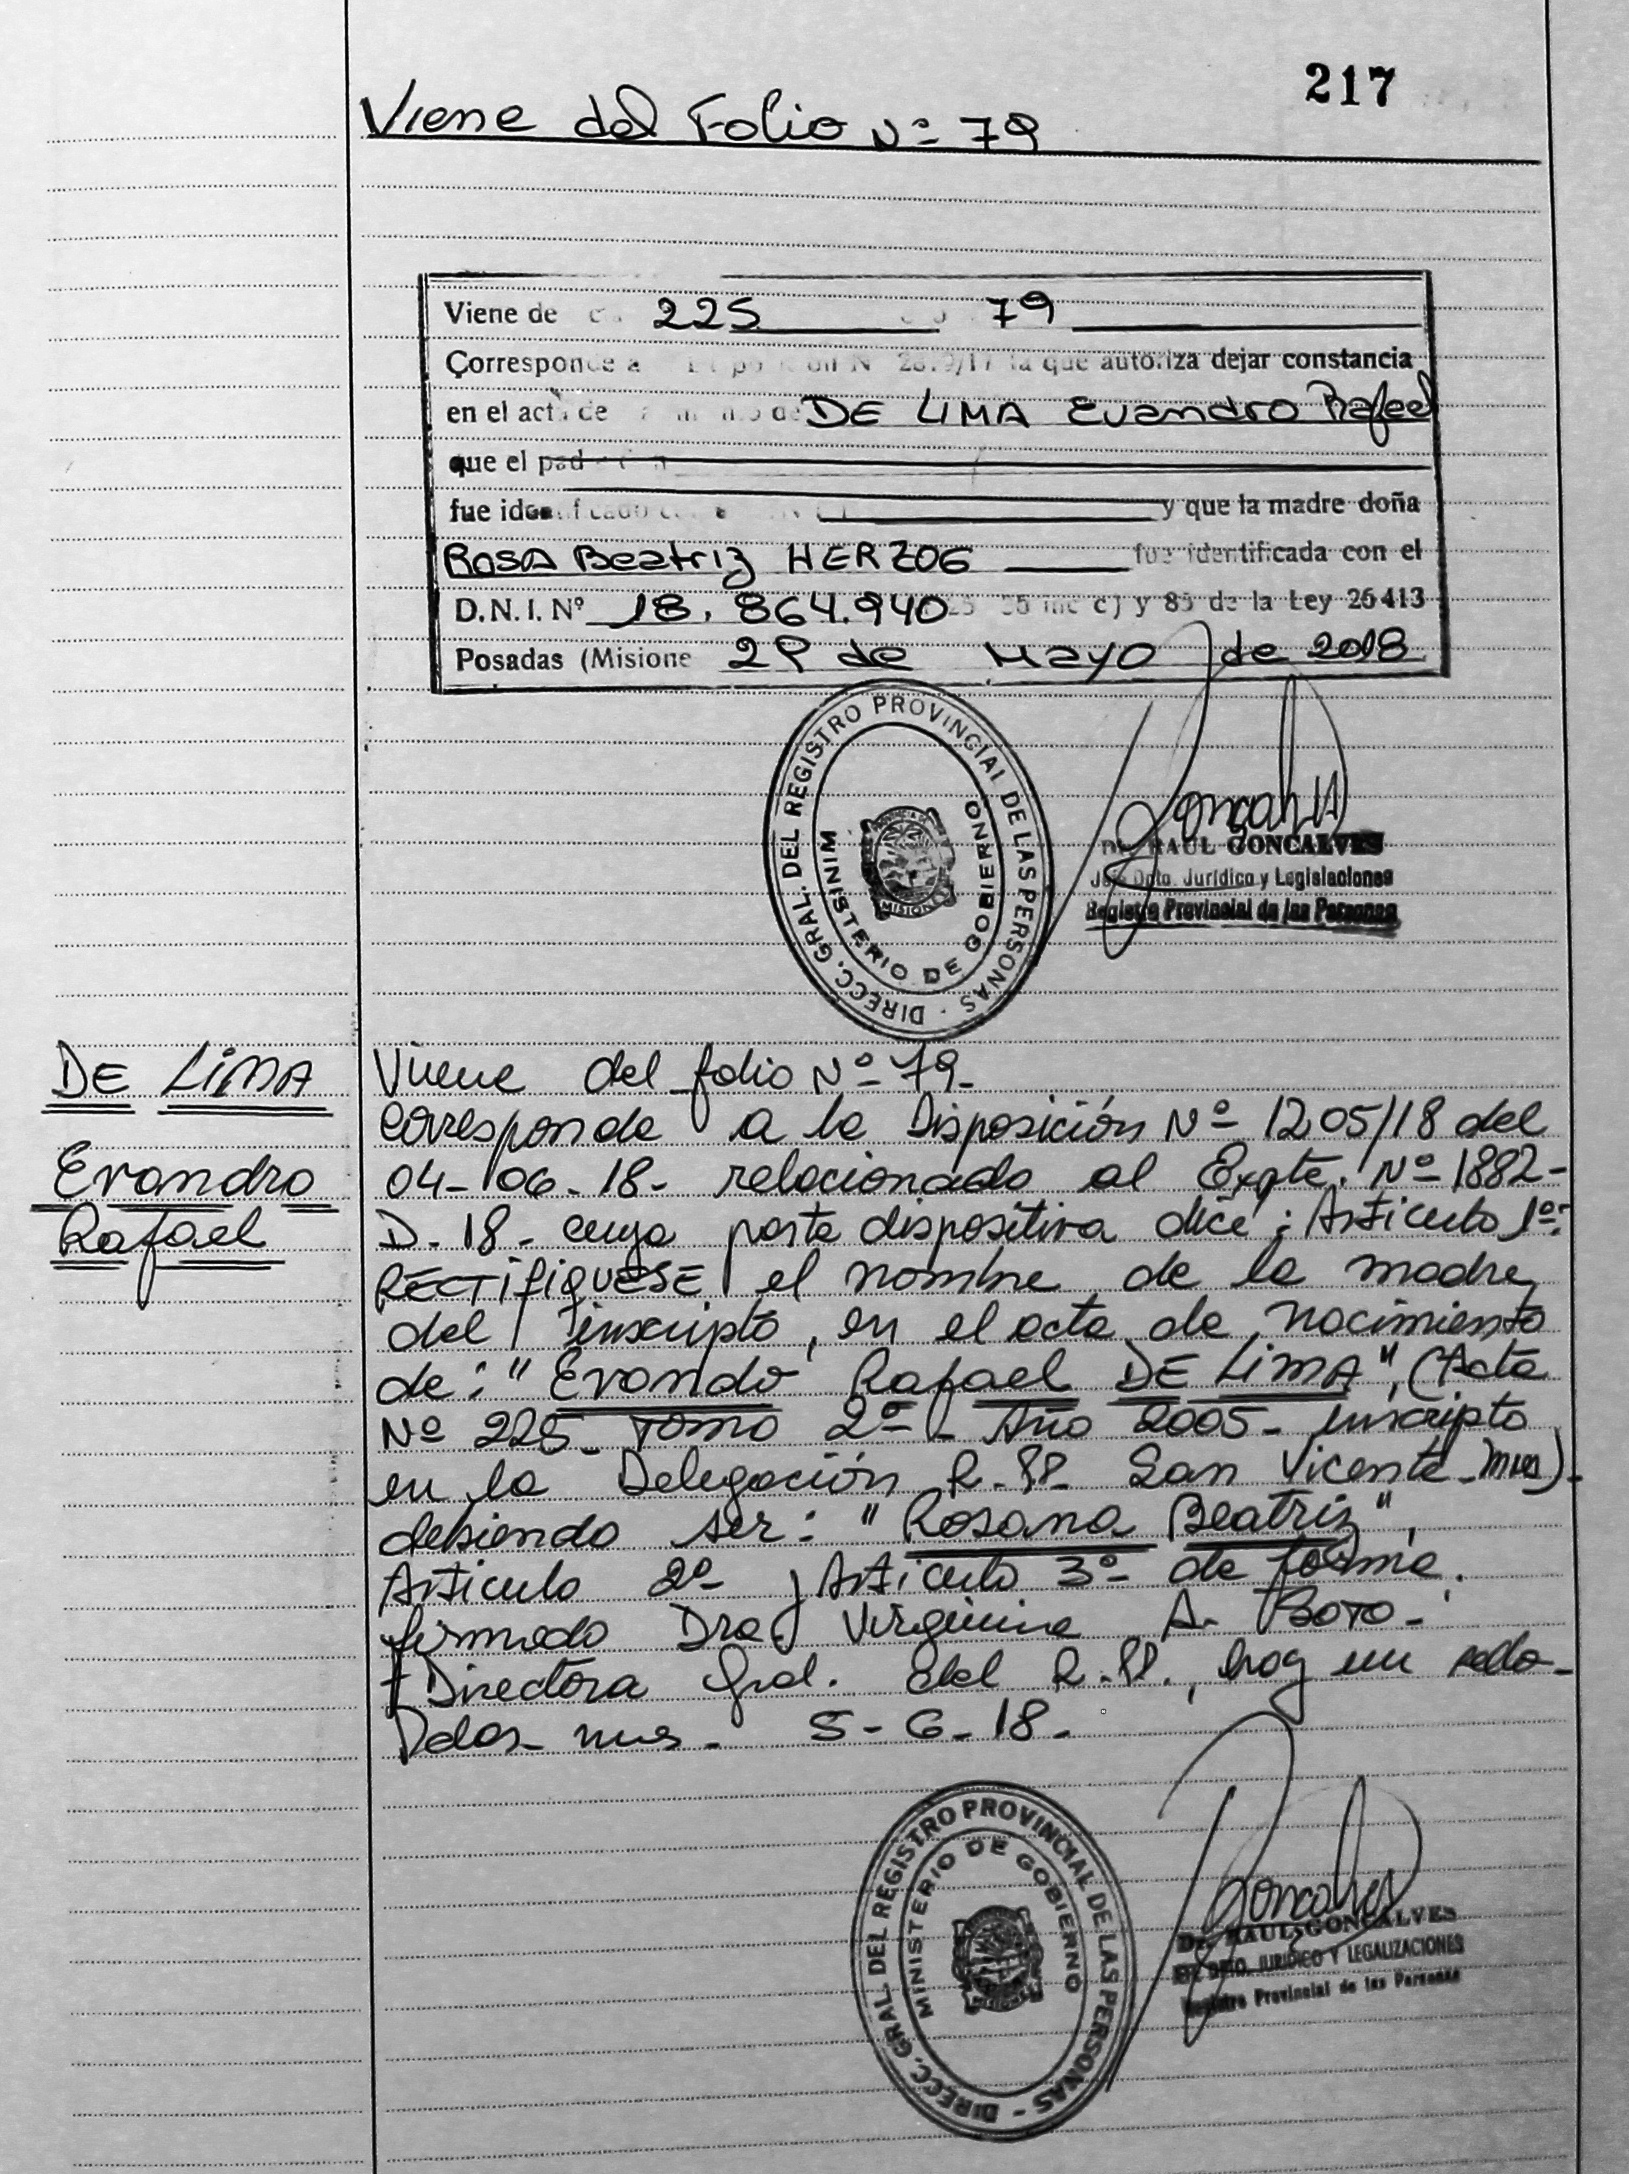 217
Viene del Folio Nº 79
Viene de 225 79
Corresponde a la que autoriza dejar constancia
en el acta de DE LIMA Evandro Rafael
que el pad
fue iden y que la madre doña
Rosa Beatriz HERZOG fue identificada con el
D.N.I. Nº 18.864.940 inc c) y 85 de la Ley 26413
Posadas (Misione 29 de Mayo de 2018
DIRECC. GRAL. DEL REGISTRO PROVINCIAL DE LAS PERSONAS
MINISTERIO DE GOBIERNO
MISIONES
Dr. RAUL GONCALVES
Jefe Dpto. Jurídico y Legislaciones
Registro Provincial de las Personas
DE LIMA
Evandro
Rafael
Viene del folio Nº 79-
corresponde a la Disposición Nº 1205/18 del
04-06-18- relacionado al Expte. Nº 1882-
D-18- cuya parte dispositiva dice: Articulo 1º:
RECTIFIQUESE el nombre de la madre
del inscripto, en el acta de nacimiento
de: "Evando Rafael DE LIMA", (Acta
Nº 225- Tomo 2º- Año 2005- inscripto
en la Delegación R.PP- San Vicente-Mnes)-
debiendo ser: "Rosana Beatriz",
Articulo 2º y Articulo 3º- de forma.
firmado Dra. Virginia A. Boto-
Directora Gral. del R.PP., hoy en
mnes- 5-6-18-
DIRECC. GRAL. DEL REGISTRO PROVINCIAL DE LAS PERSONAS
MINISTERIO DE GOBIERNO
Dr. RAUL GONCALVES
JEFE DPTO. JURIDICO Y LEGALIZACIONES
Registro Provincial de las Personas